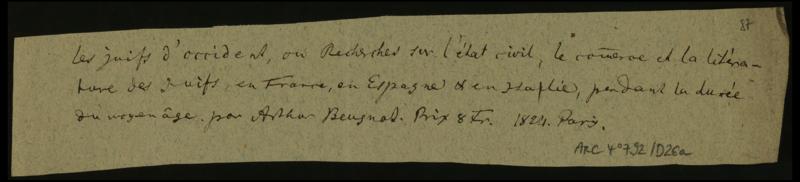 87
Les juifs d'occident, ou Recherches sur l'état civil, le com̄erce et la litéra-
ture des Juifs, en France, en Espagne & en Italie, pendant la durée
du moyen âge. par Arthur Beugnot. Prix 8 Fr. 1824. Paris.
ARC 4° 792 / D26a